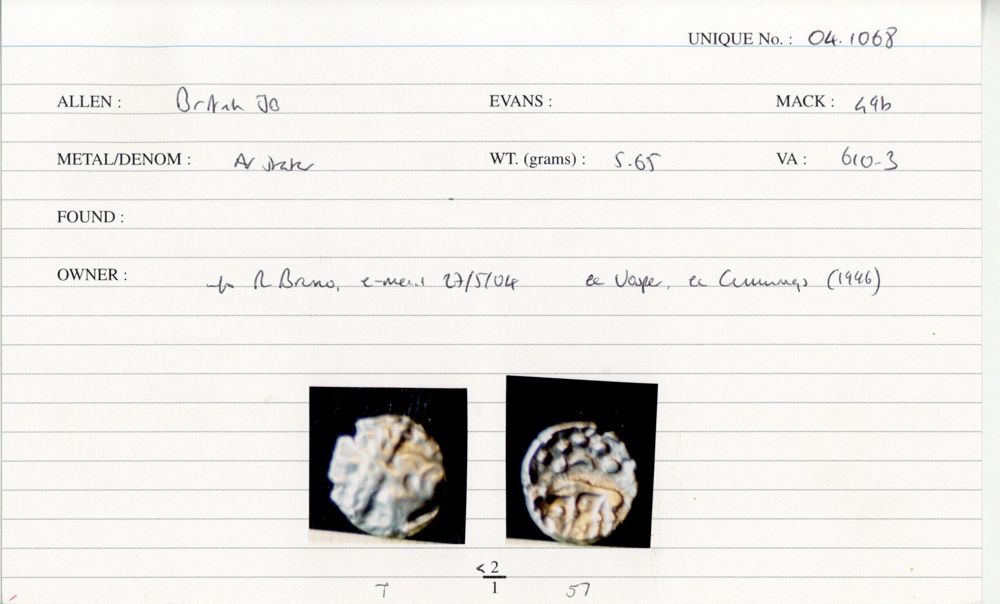 UNIQUE No. : 04.1068
ALLEN : British JB EVANS : MACK : 49b
METAL/DENOM : Ar stater WT. (grams) : 5.65 VA : 610-3
FOUND :
OWNER : R e-mail 27/5/04 ex Vosper, ex Cummings (1996)
< 2
1
7 57